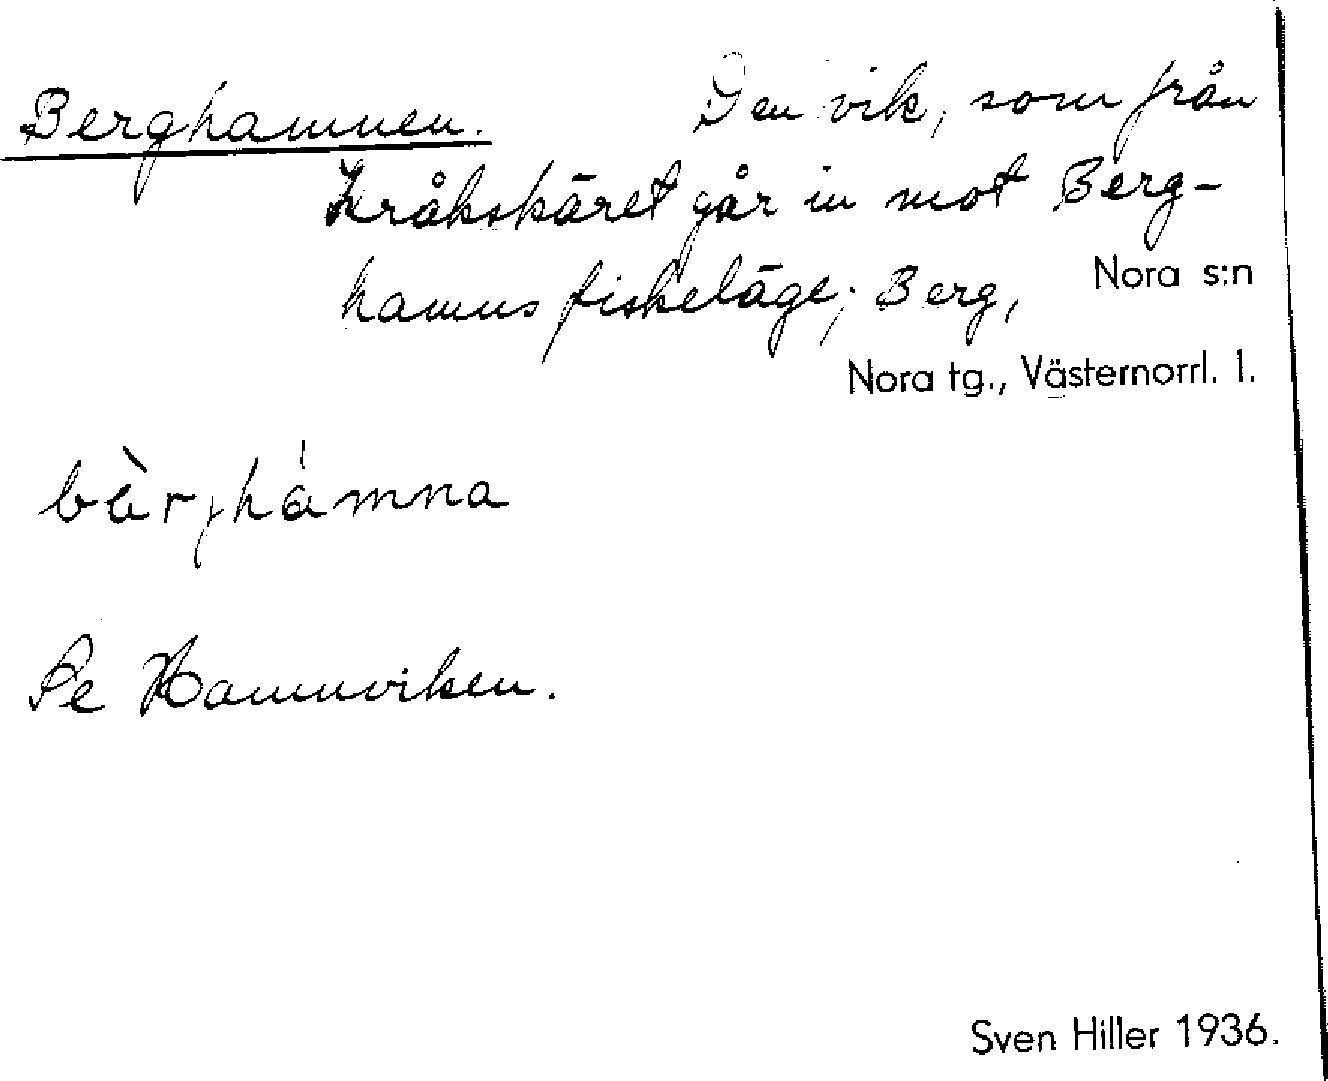 Berghamnen. Den vik, som från
Kråkskäret går in mot Berg-
hamns fiskeläge; Berg, Nora s:n
Nora tg., Västernorrl. l.
bὰrɟhàmna
Se Hamnviken.
Sven Hiller 1936.